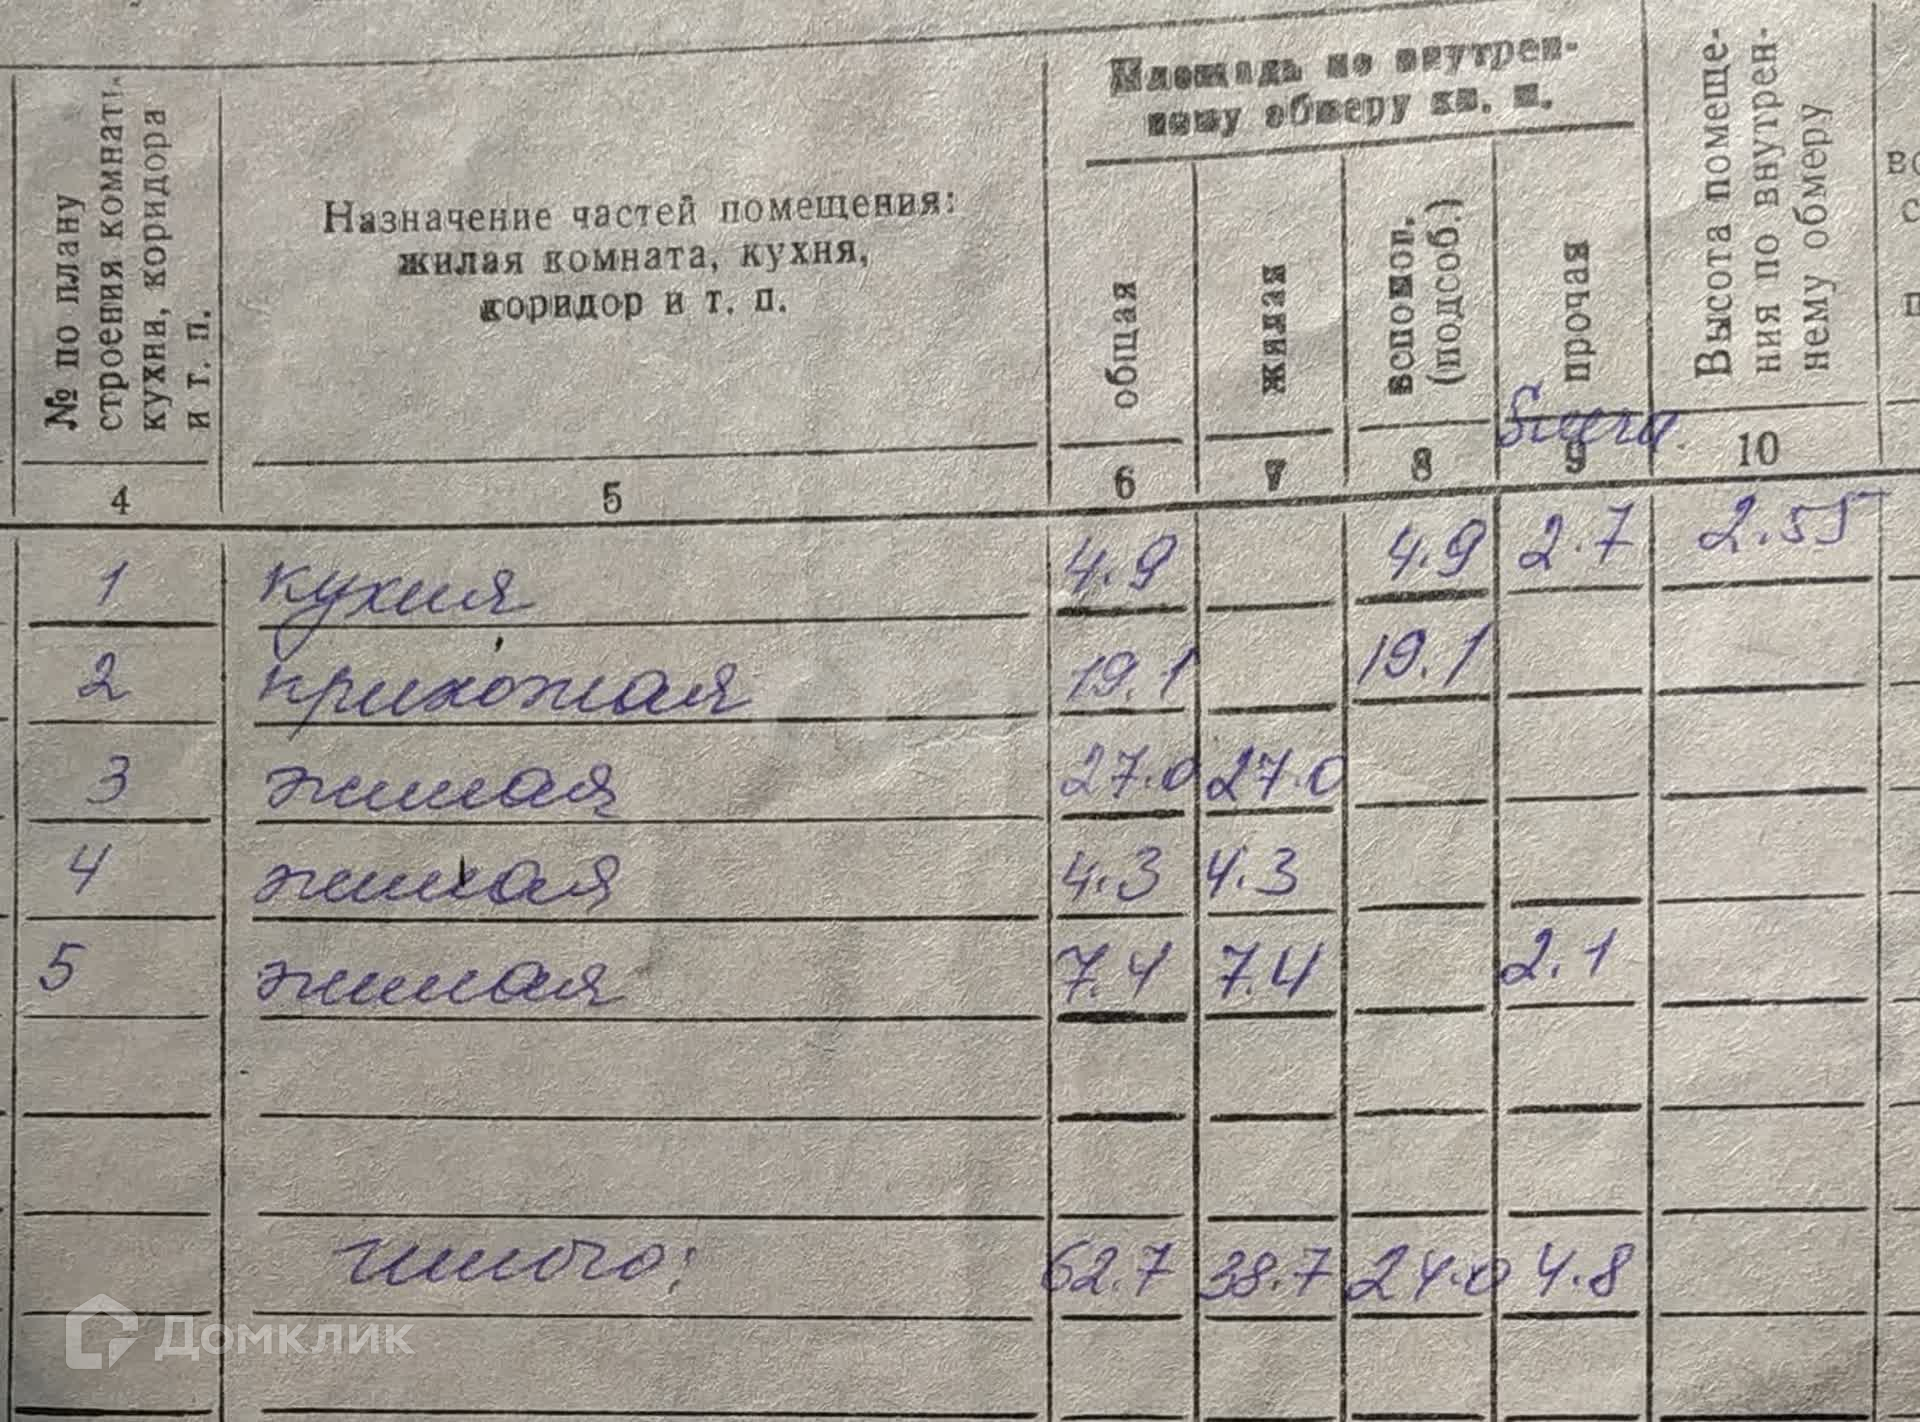 № по плану
строения комнаты,
кухни, коридора
и т. п.
Назначение частей помещения:
жилая комната, кухня,
коридор и т. п.
Площадь по внутрен-
нему обмеру кв. м.
общая
жилая
вспомог.
(подсоб.)
прочая
Высота помеще-
ния по внутрен-
нему обмеру
4 5 6 7 8 9 10
1 кухня 4.9 4.9 2.7 2.55
2 прихожая 19.1 19.1
3 жилая 27.0 27.0
4 жилая 4.3 4.3
5 жилая 7.4 7.4 2.1
итого: 62.7 38.7 24.0 4.8
Домклик